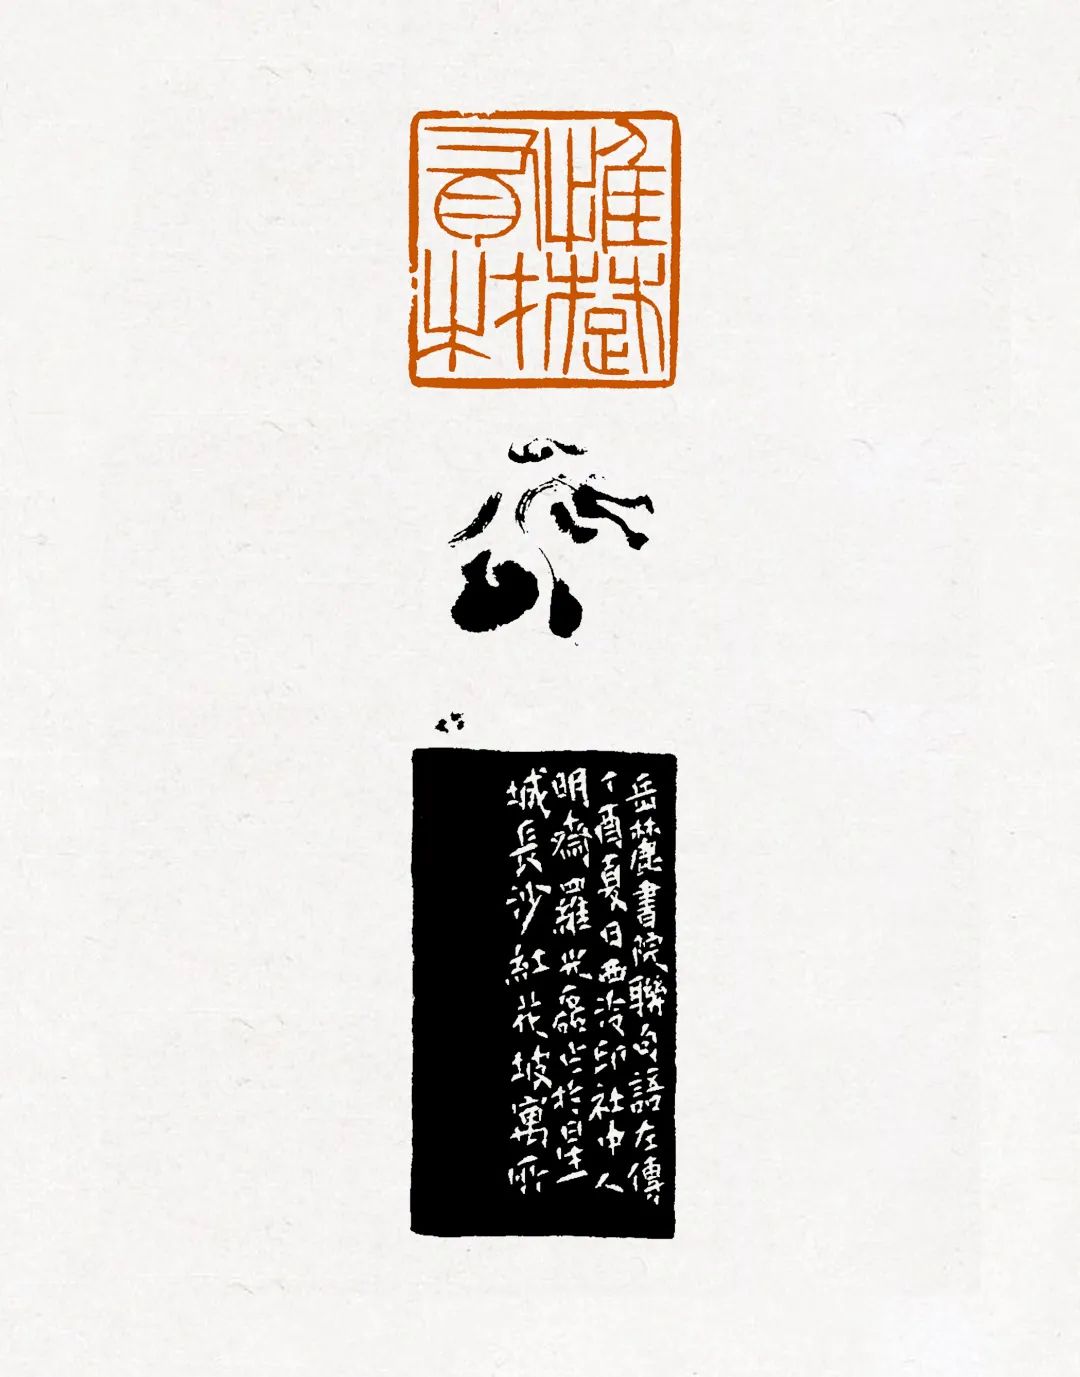 惟楚
有材
岳麓書院聯句語左傳
丁酉夏日西泠印社中人
明齋羅光磊作於星
城長沙紅花坡寓所